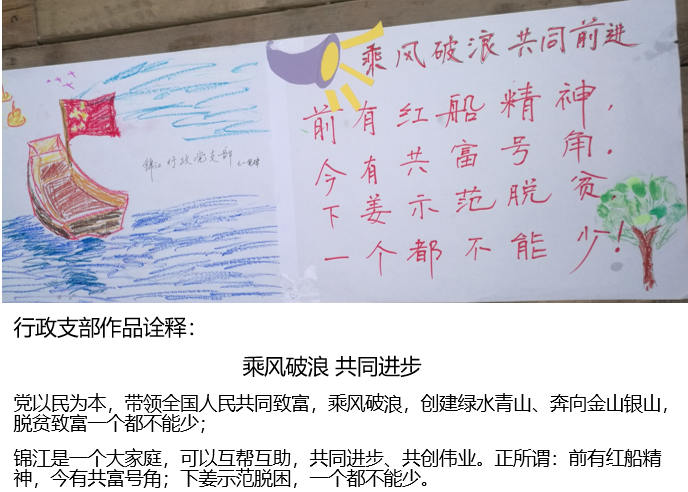 乘风破浪共同前进
前有红船精神，
今有共富号角。
下姜示范脱贫
一个都不能少！
锦江行政党支部
行政支部作品诠释：
乘风破浪 共同进步
党以民为本，带领全国人民共同致富，乘风破浪，创建绿水青山、奔向金山银山，
脱贫致富一个都不能少；
锦江是一个大家庭，可以互帮互助，共同进步、共创伟业。正所谓：前有红船精
神，今有共富号角；下姜示范脱困，一个都不能少。